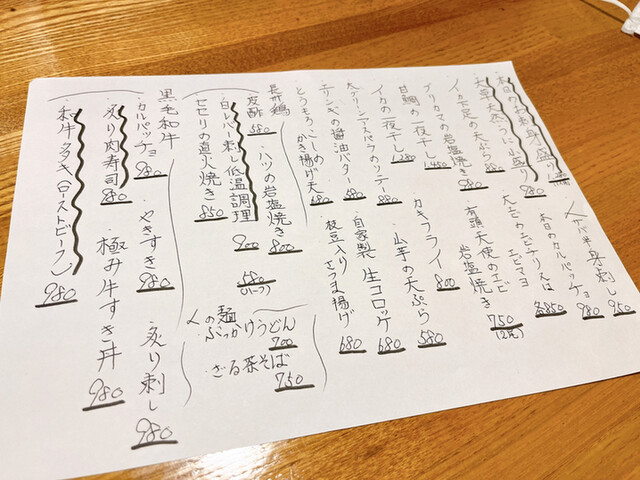 本日のお刺身盛り
天草天然うに小盛り 980
イカ下足の天ぷら 580
ブリカマの岩塩焼き 980
甘鯛の一夜干し 1,450
イカの一夜干し 1,280
大グリーンアスパラのソテー 880
エリンギの醤油バター 680
とうもろこしのかき揚げ天 680
サバ半身刺し 950
本日のカルパッチョ 980
大エビのエビチリ又は
エビマヨ 各850
有頭天使のエビ
岩塩焼き 750
カキフライ 800
山芋の天ぷら 580
自家製生コロッケ 680
枝豆入りさつま揚げ 680
長州鶏
皮酢 580
ハツの岩塩焼き 800
白レバー刺し低温調理 900
580
(ハーフ)
セセリの直火焼き 850
麺
ぶっかけうどん 700
ざる茶そば 750
黒毛和牛
カルパッチョ 980
炙り肉寿司 980
和牛タタキ(ローストビーフ) 980
やきすき 980
極み牛すき丼 980
炙り刺し 980